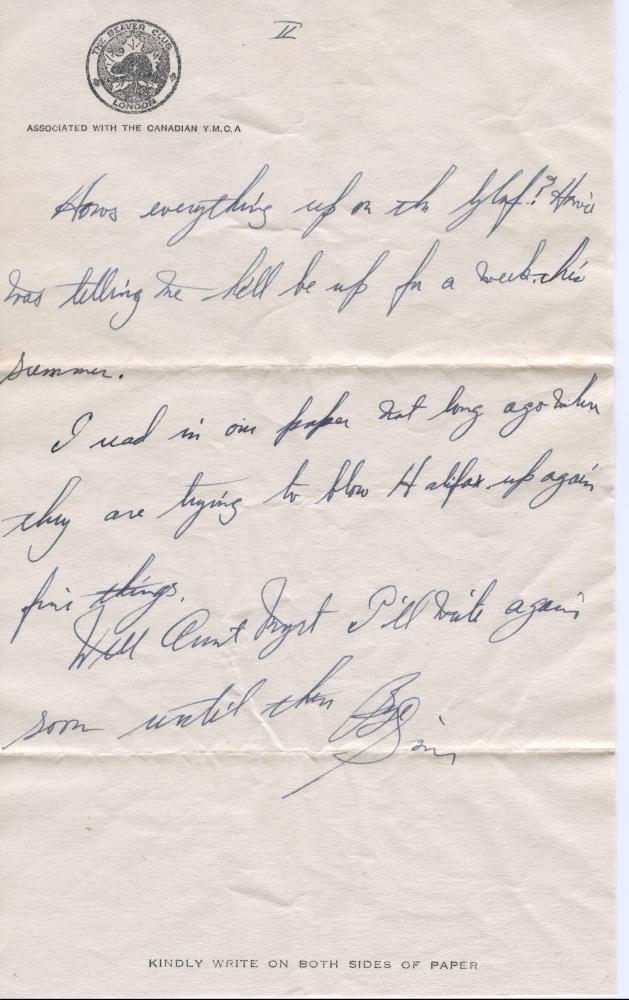 II
THE BEAVER CLUB
LONDON
ASSOCIATED WITH THE CANADIAN Y.M.C.A
Hows everything up on the
was telling me he'll be up for a week this
summer.
I read in our paper not long ago when
they are trying to blow Halifax up again
fine things.
Well Aunt I'll write again
soon until then Bye
KINDLY WRITE ON BOTH SIDES OF PAPER